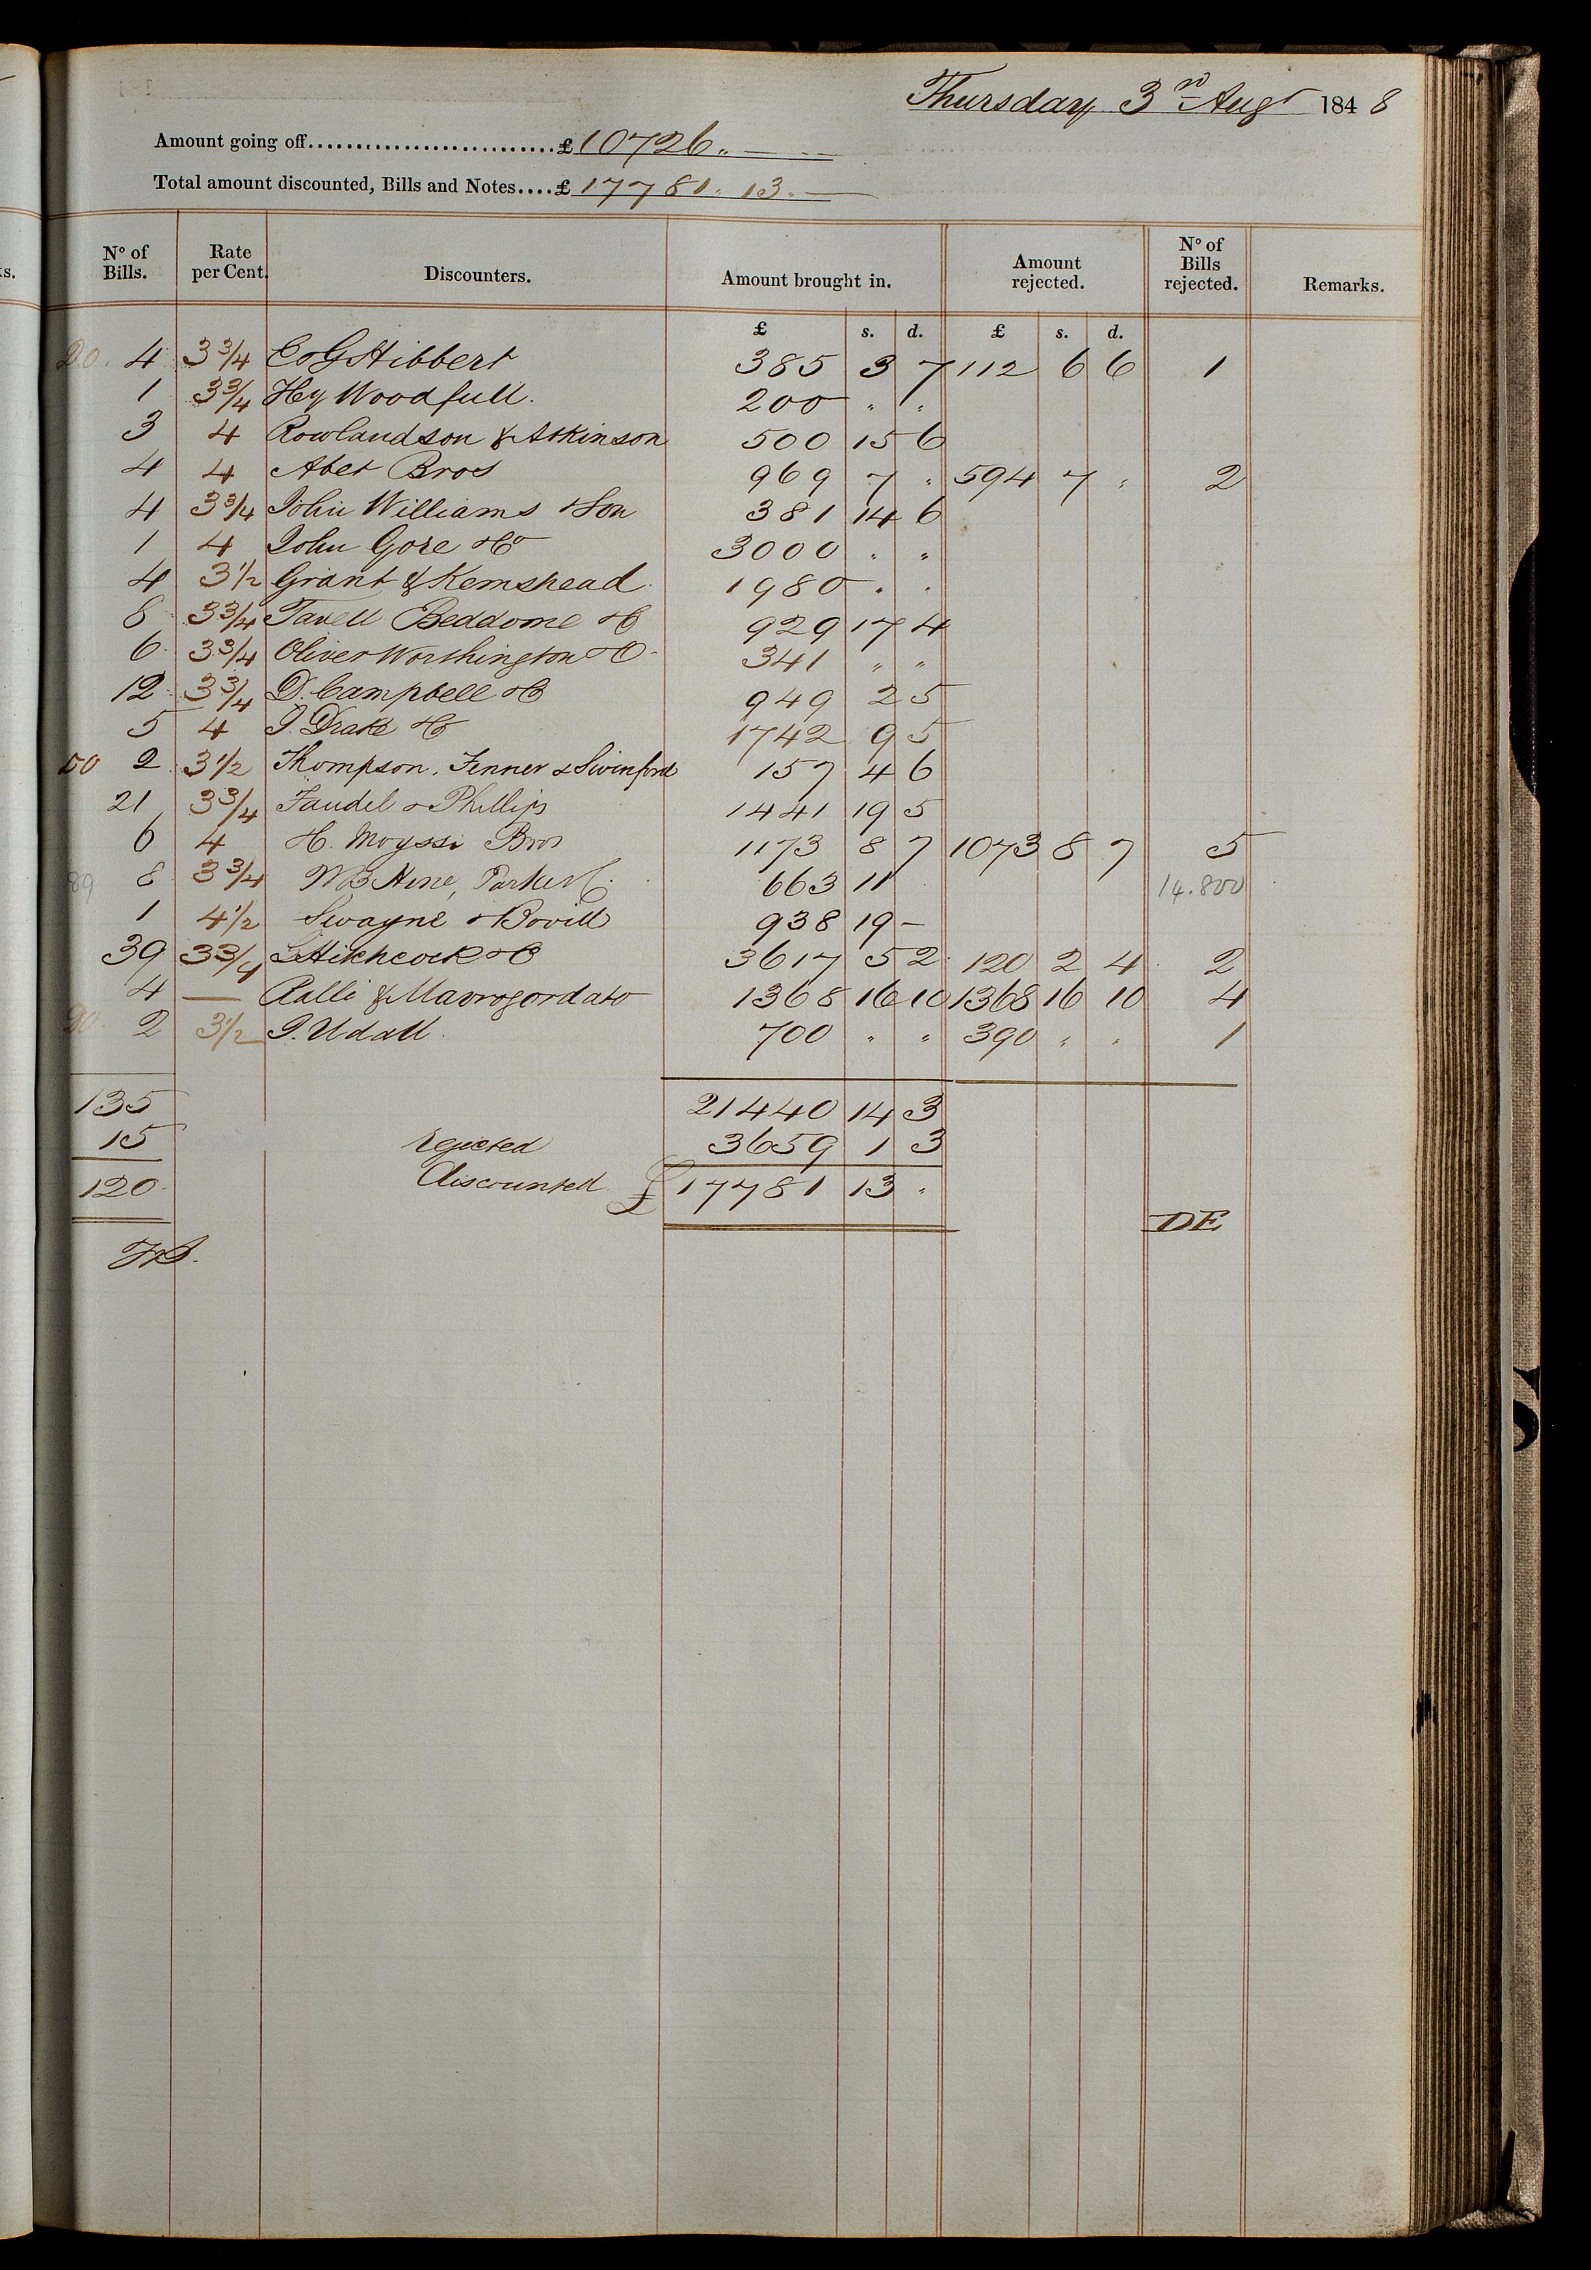 Thursday 3rd Augt 1848
Amount going off..........................£10726. " —
Total amount discounted, Bills and Notes....£ 17781. 13. —
s.
No of Bills. Rate per Cent. Discounters. Amount brought in. Amount rejected. No of Bills rejected. Remarks.
£ s. d. £ s. d.
20. 4 3 3/4 E & G Hibbert 385 3 7 112 6 6 1
1 3 3/4 Hy Woodfull. 200 " "
3 4 Rowlandson & Atkinson 500 15 6
4 4 Abet Bros 969 7 " 594 7 " 2
4 3 3/4 John Williams & Son 381 14 6
1 4 John Gore & Co 3000 " "
4 3 1/2 Grant & Kemshead. 1980 " "
8 3 3/4 Beddome & Co 929 17 4
6 3 3/4 Oliver Worthington & Co 341 " "
12 3 3/4 D. Campbell & Co 949 2 5
5 4 J. Drake & Co 1742 9 5
50 2 3 1/2 Thompson, Fenner & Swinford 157 4 6
21 3 3/4 Faudel & Phillips 1441 19 5
6 4 H. Moyssi Bros 1173 8 7 1073 8 7 5
89 8 3 3/4 Hine, Parker 663 11 14.800
1 4 1/2 Swayne & Bovill 938 19 –
39 3 3/4 Hitchcock & Co 3617 5 2 120 2 4 2
4 — Ralli & Mavrogordato 1368 16 10 1368 16 10 4
90. 2 3 1/2 J. Udall. 700 " " 390 " " 1
135 21440 14 3
15 rejected 3659 1 3
120 discounted £ 17781 13 "
DE